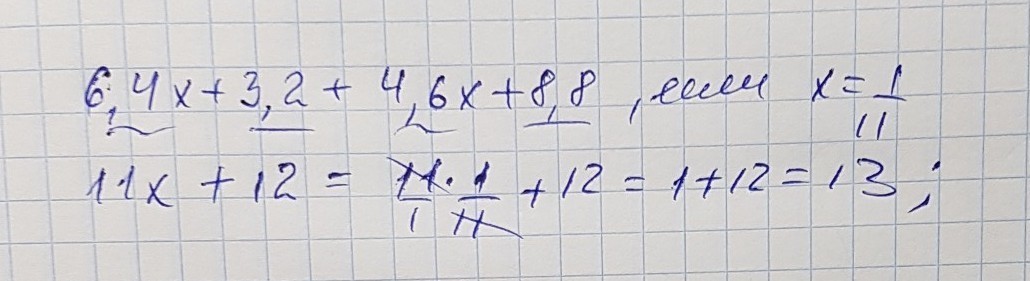 6,4x + 3,2 + 4,6x + 8,8 , если x = 1/11
11x + 12 = 11·1/11 + 12 = 1 + 12 = 13 ;